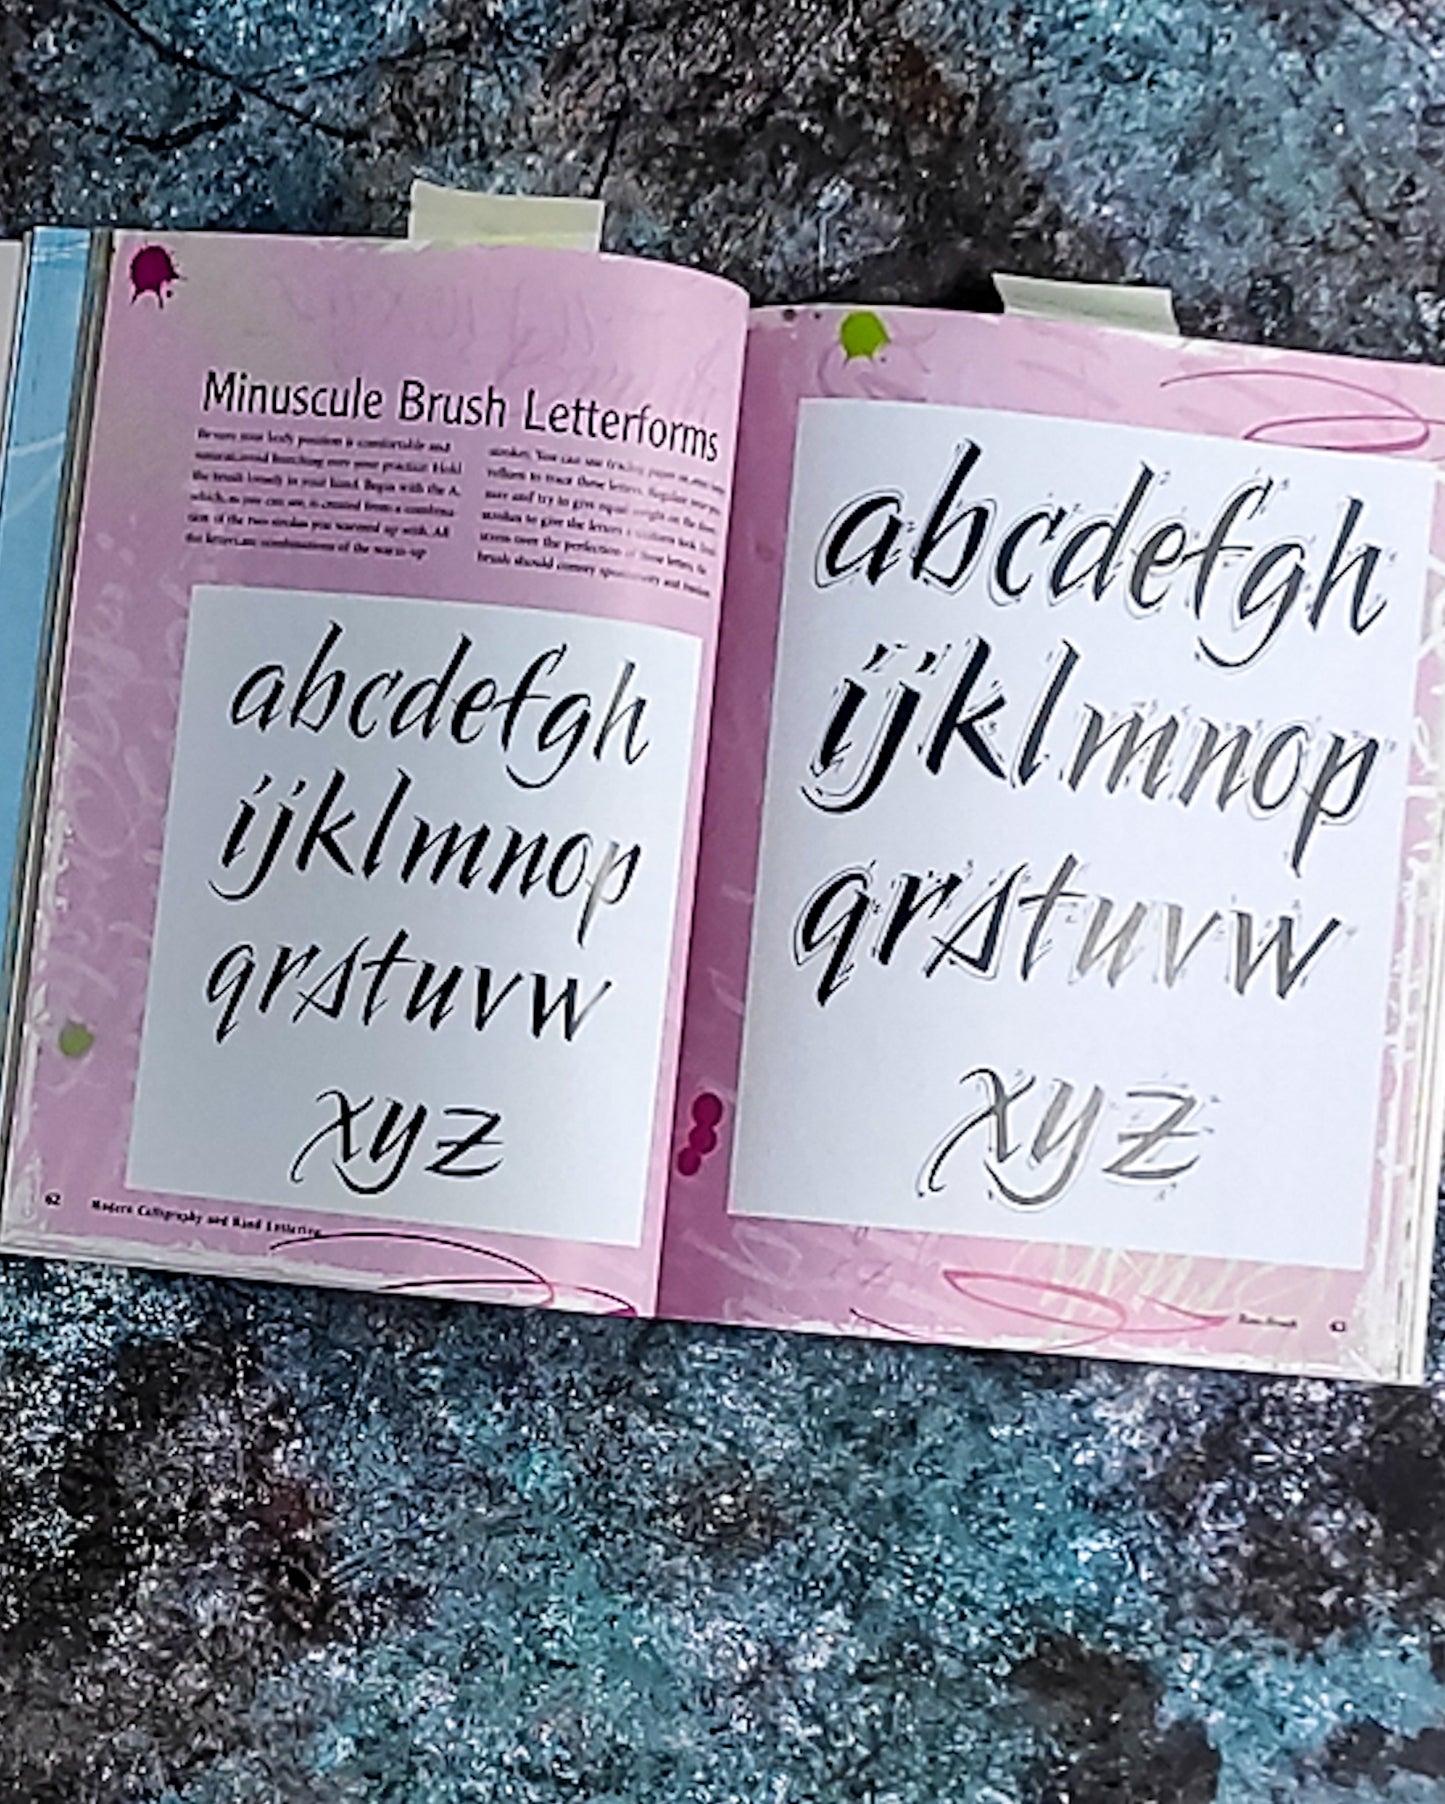 Minuscule Brush Letterforms
Be sure your body position is comfortable and
natural; avoid hunching over your practice. Hold
the brush loosely in your hand. Begin with the A,
which, as you can see, is created from a combina-
tion of the two strokes you warmed up with. All
the letters are combinations of the warm-up
strokes. You can use tracing paper or
vellum to trace these letters. Regulate your
and try to give equal weight on the
strokes to give the letters a uniform look. Don't
stress over the perfection of these letters; the
brush should convey spontaneity and freedom.
abcdefgh
ijklmnop
qrstuvw
xyz
62 Modern Calligraphy and Hand Lettering
abcdefgh
ijklmnop
qrstuvw
xyz
63